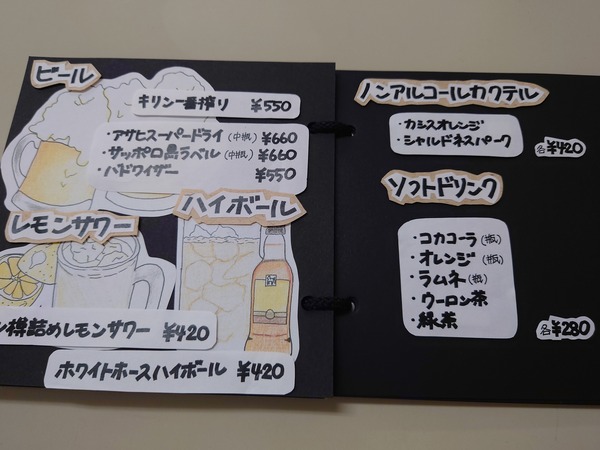 ビール
キリン一番搾り ¥550
・アサヒスーパードライ(中瓶) ¥660
・サッポロ黒ラベル(中瓶) ¥660
・バドワイザー ¥550
レモンサワー
ハイボール
樽詰めレモンサワー ¥420
ホワイトホースハイボール ¥420
ノンアルコールカクテル
・カシスオレンジ
・シャルドネスパーク
各¥420
ソフトドリンク
・コカコーラ(瓶)
・オレンジ(瓶)
・ラムネ(瓶)
・ウーロン茶
・緑茶
各¥280